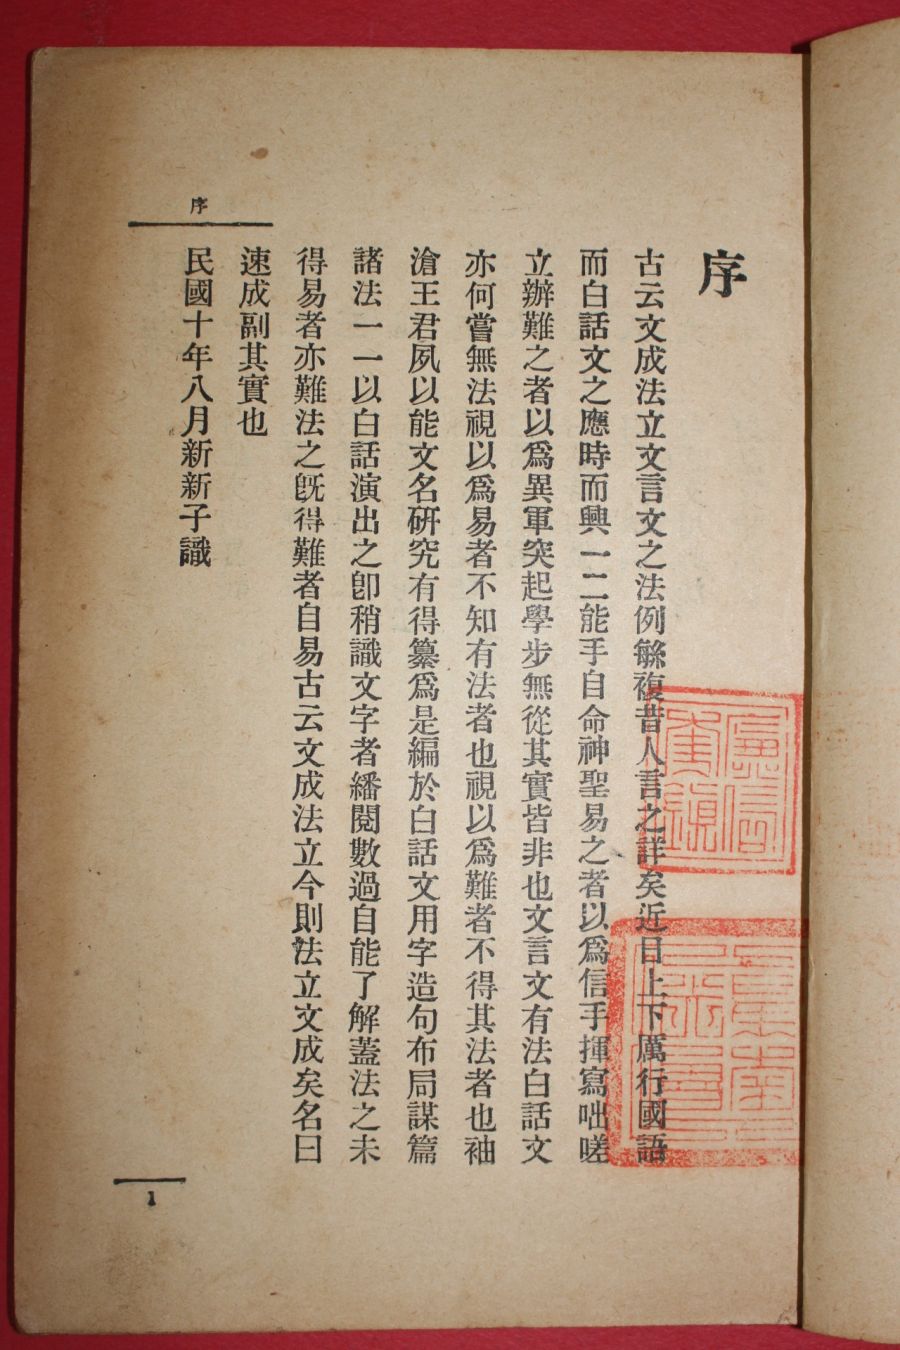 序
古云文成法立文言文之法例緐複昔人言之詳矣近日上下厲行國語
而白話文之應時而興一二能手自命神聖易之者以爲信手揮寫咄嗟
立辦難之者以爲異軍突起學步無從其實皆非也文言文有法白話文
亦何嘗無法視以爲易者不知有法者也視以爲難者不得其法者也袖
滄王君夙以能文名硏究有得纂爲是編於白話文用字造句布局謀篇
諸法一一以白話演出之卽稍識文字者繙閱數過自能了解蓋法之未
得易者亦難法之旣得難者自易古云文成法立今則法立文成矣名曰
速成副其實也
民國十年八月新新子識
序
1